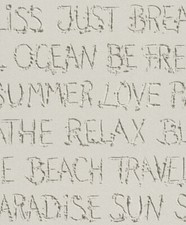 LISS JUST BREA
OCEAN BE FRE
SUMMER LOVE
THE RELAX B
E BEACH TRAVEL
ARADISE SUN S